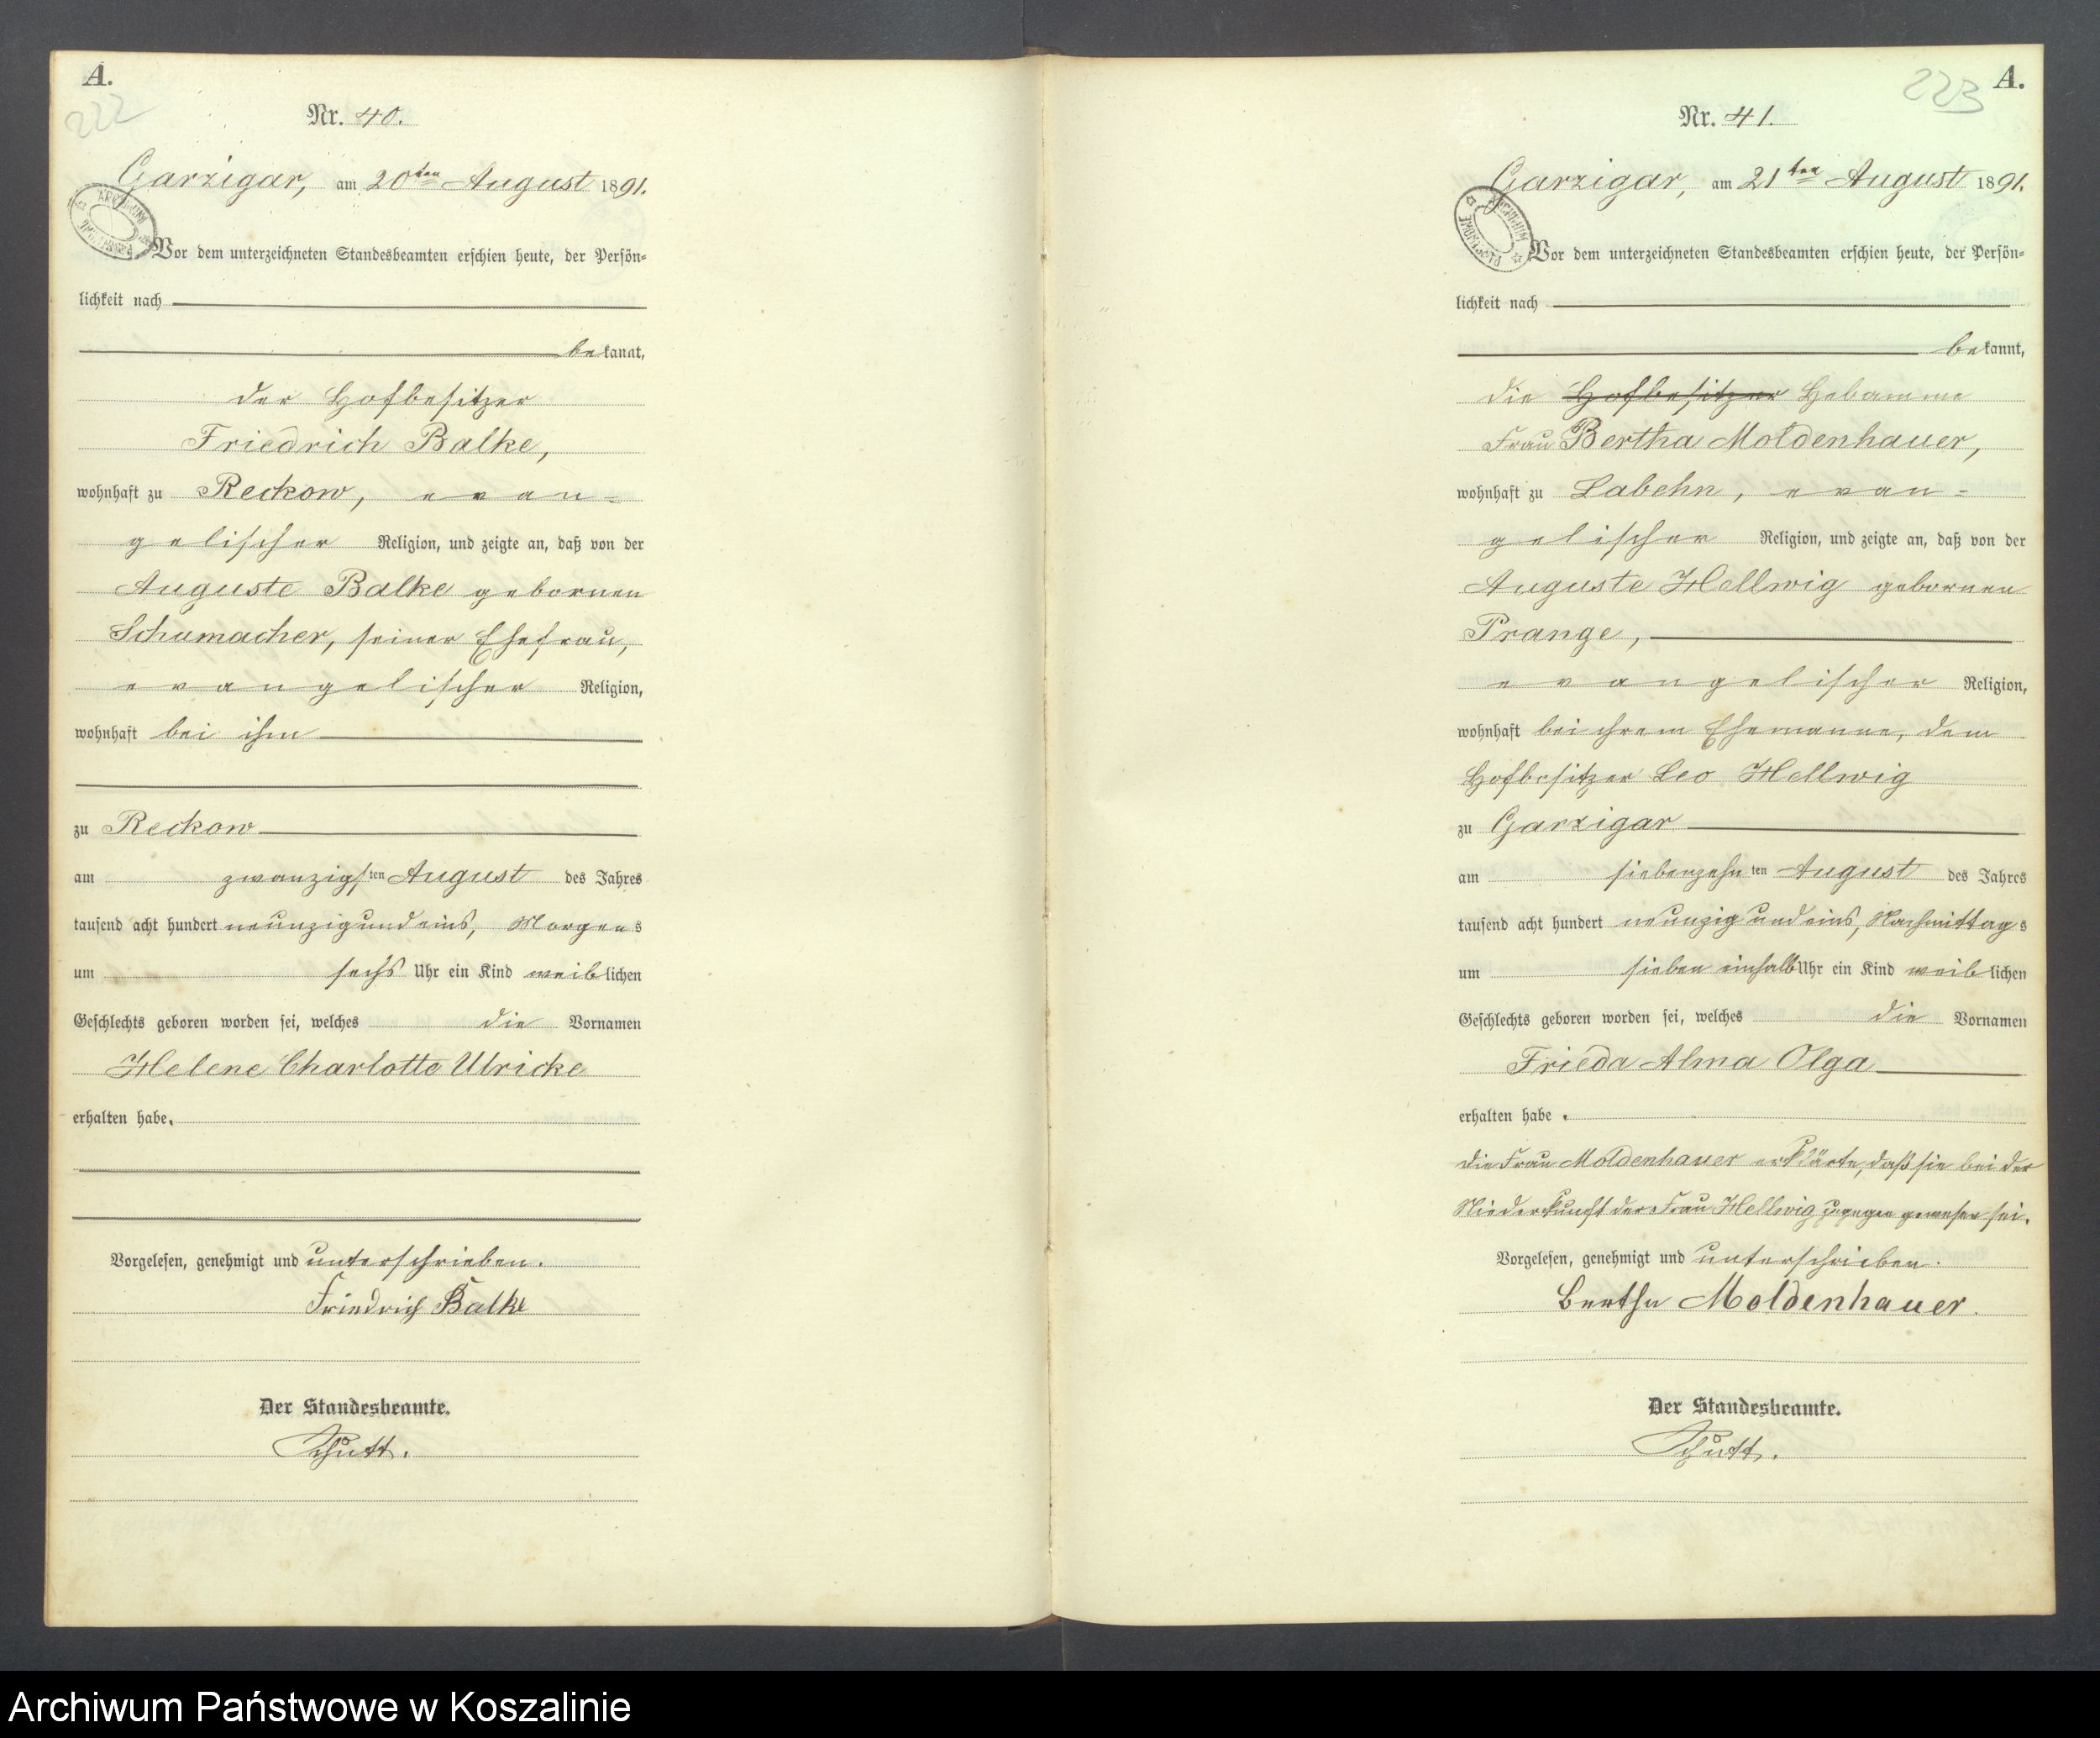 A.
222
Nr. 40.
Garzigar, am 20ten August 1891.
Vor dem unterzeichneten Standesbeamten erschien heute, der Persön=
lichkeit nach
bekannt,
der Hofbesitzer
Friedrich Balke,
wohnhaft zu Reckow, evan=
gelischer Religion, und zeigte an, daß von der
Auguste Balke gebornen
Schumacher, seiner Ehefrau,
evangelischer Religion,
wohnhaft bei ihm
zu Reckow
am zwanzigsten August des Jahres
tausend acht hundert neunzigundeins, Morgens
um sechs Uhr ein Kind weiblichen
Geschlechts geboren worden sei, welches die Vornamen
Helene Charlotte Ulricke
erhalten habe.
Vorgelesen, genehmigt und unterschrieben.
Friedrich Balke
Der Standesbeamte.
Schutt.
A.
223
Nr. 41.
Garzigar, am 21ten August 1891.
Vor dem unterzeichneten Standesbeamten erschien heute, der Persön=
lichkeit nach
bekannt,
die Hofbesitzer Hebamme
Frau Bertha Moldenhauer,
wohnhaft zu Labehn, evan=
gelischer Religion, und zeigte an, daß von der
Auguste Hellwig gebornen
Prange,
evangelischer Religion,
wohnhaft bei ihrem Ehemanne, dem
Hofbesitzer Leo Hellwig
zu Garzigar
am siebenzehnten August des Jahres
tausend acht hundert neunzigundeins, Nachmittags
um sieben einhalb Uhr ein Kind weiblichen
Geschlechts geboren worden sei, welches die Vornamen
Frieda Alma Olga
erhalten habe.
Die Frau Moldenhauer erklärte, daß sie bei der
Niederkunft der Frau Hellwig zugegen gewesen sei.
Vorgelesen, genehmigt und unterschrieben.
Bertha Moldenhauer.
Der Standesbeamte.
Schutt.
Archiwum Państwowe w Koszalinie